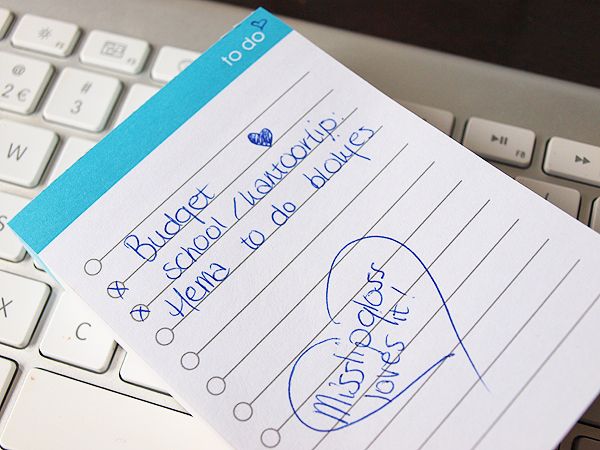 to do
Budget
school/kantoortip:
Hema to do blokjes
Misslipgloss
loves it!
@
2 €
#
3
W
X
C
F5
F6
F8